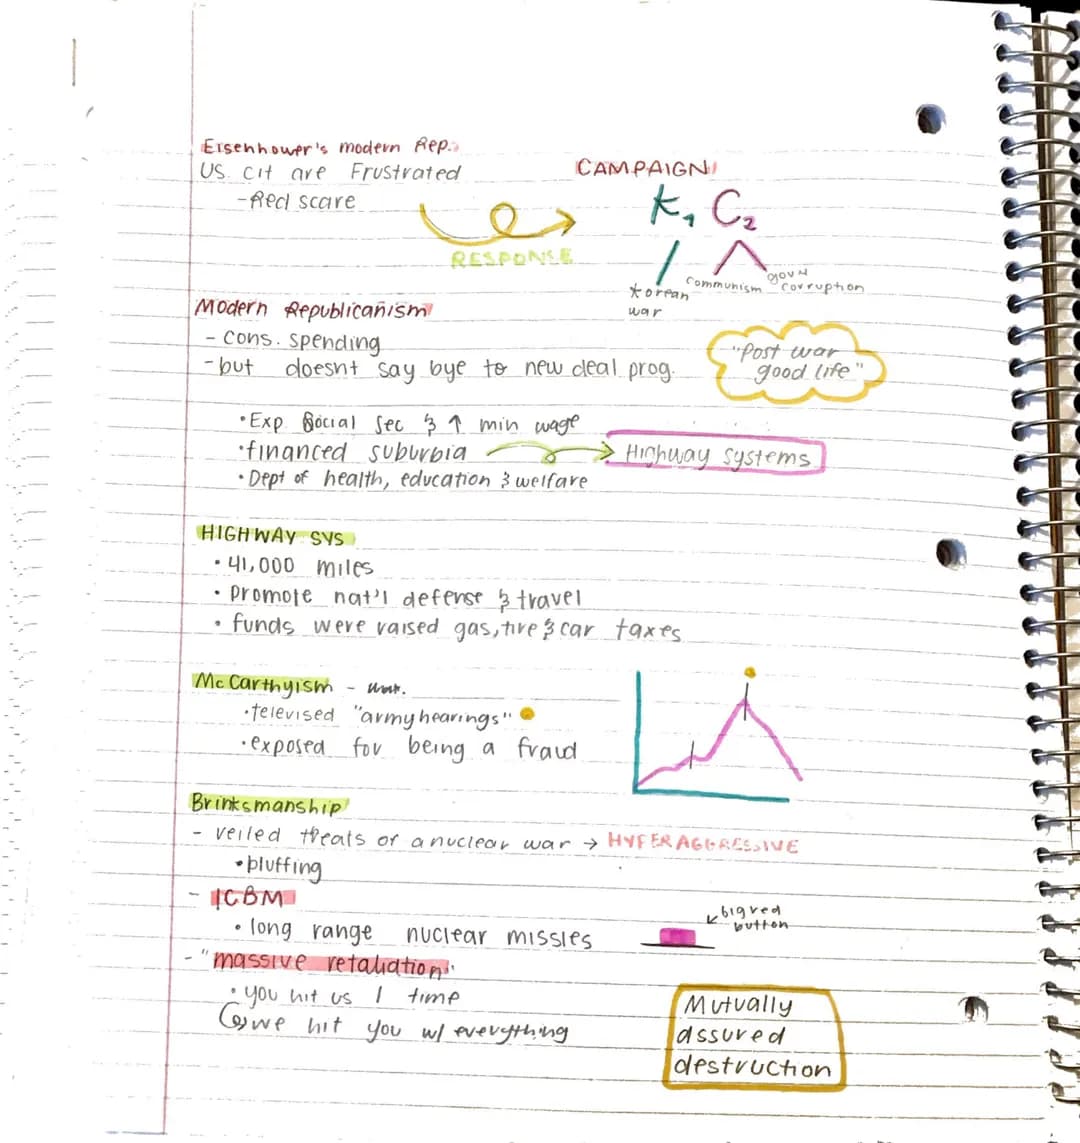 Eisenhower's modern Rep.
US cit are Frustrated
-Red scare
RESPONSE
CAMPAIGN
K, C₂
Korean war
communism
govn corruption
Modern Republicanism
- cons. spending
-but doesnt say bye to new deal prog.
"Post war
good life"
•Exp Social Sec & ↑ min wage
•financed suburbia
Highway systems
•Dept of health, education & welfare
HIGHWAY SYS
• 41,000 miles
• promote nat'l defense & travel
• funds were raised gas, tire & car taxes
McCarthyism -
•televised "army hearings"
•exposed for being a fraud
Brinksmanship
- veiled threats of a nuclear war → HYPERAGGRESSIVE
•bluffing
- ICBM
• long range nuclear missles
big red
button
- "massive retaliation"
• you hit us 1 time
we hit you w/ everything
Mutually
assured
destruction